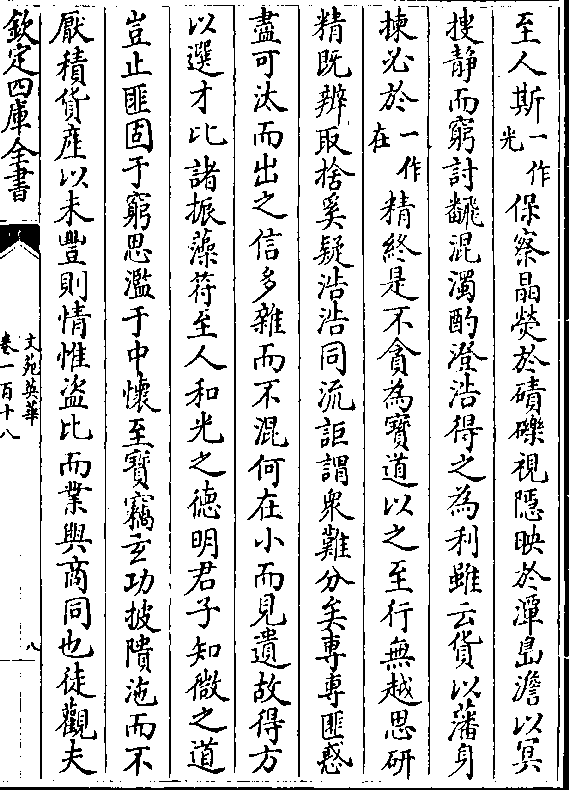 至人斯一作光保察晶熒於磧礫視隱映於潭島澹以冥
搜靜而窮討飜混濁酌澄浩得之為利雖云貨以藩身
揀必於一作在精終是不貪為寶道以之至行無越思研
精既辨取捨奚疑浩浩同流詎謂衆難分矣専専匪惑
盡可汰而出之信多雜而不混何在小而見遺故得方
以選才比諸振藻符至人和光之德明君子知微之道
豈止匪固于窮思濫于中懷至寶竊玄功披隤沲而不
厭積貨産以未豐則情惟盗比而業與商同也徒觀夫
欽定四庫全書
文苑英華
卷一百十八
八